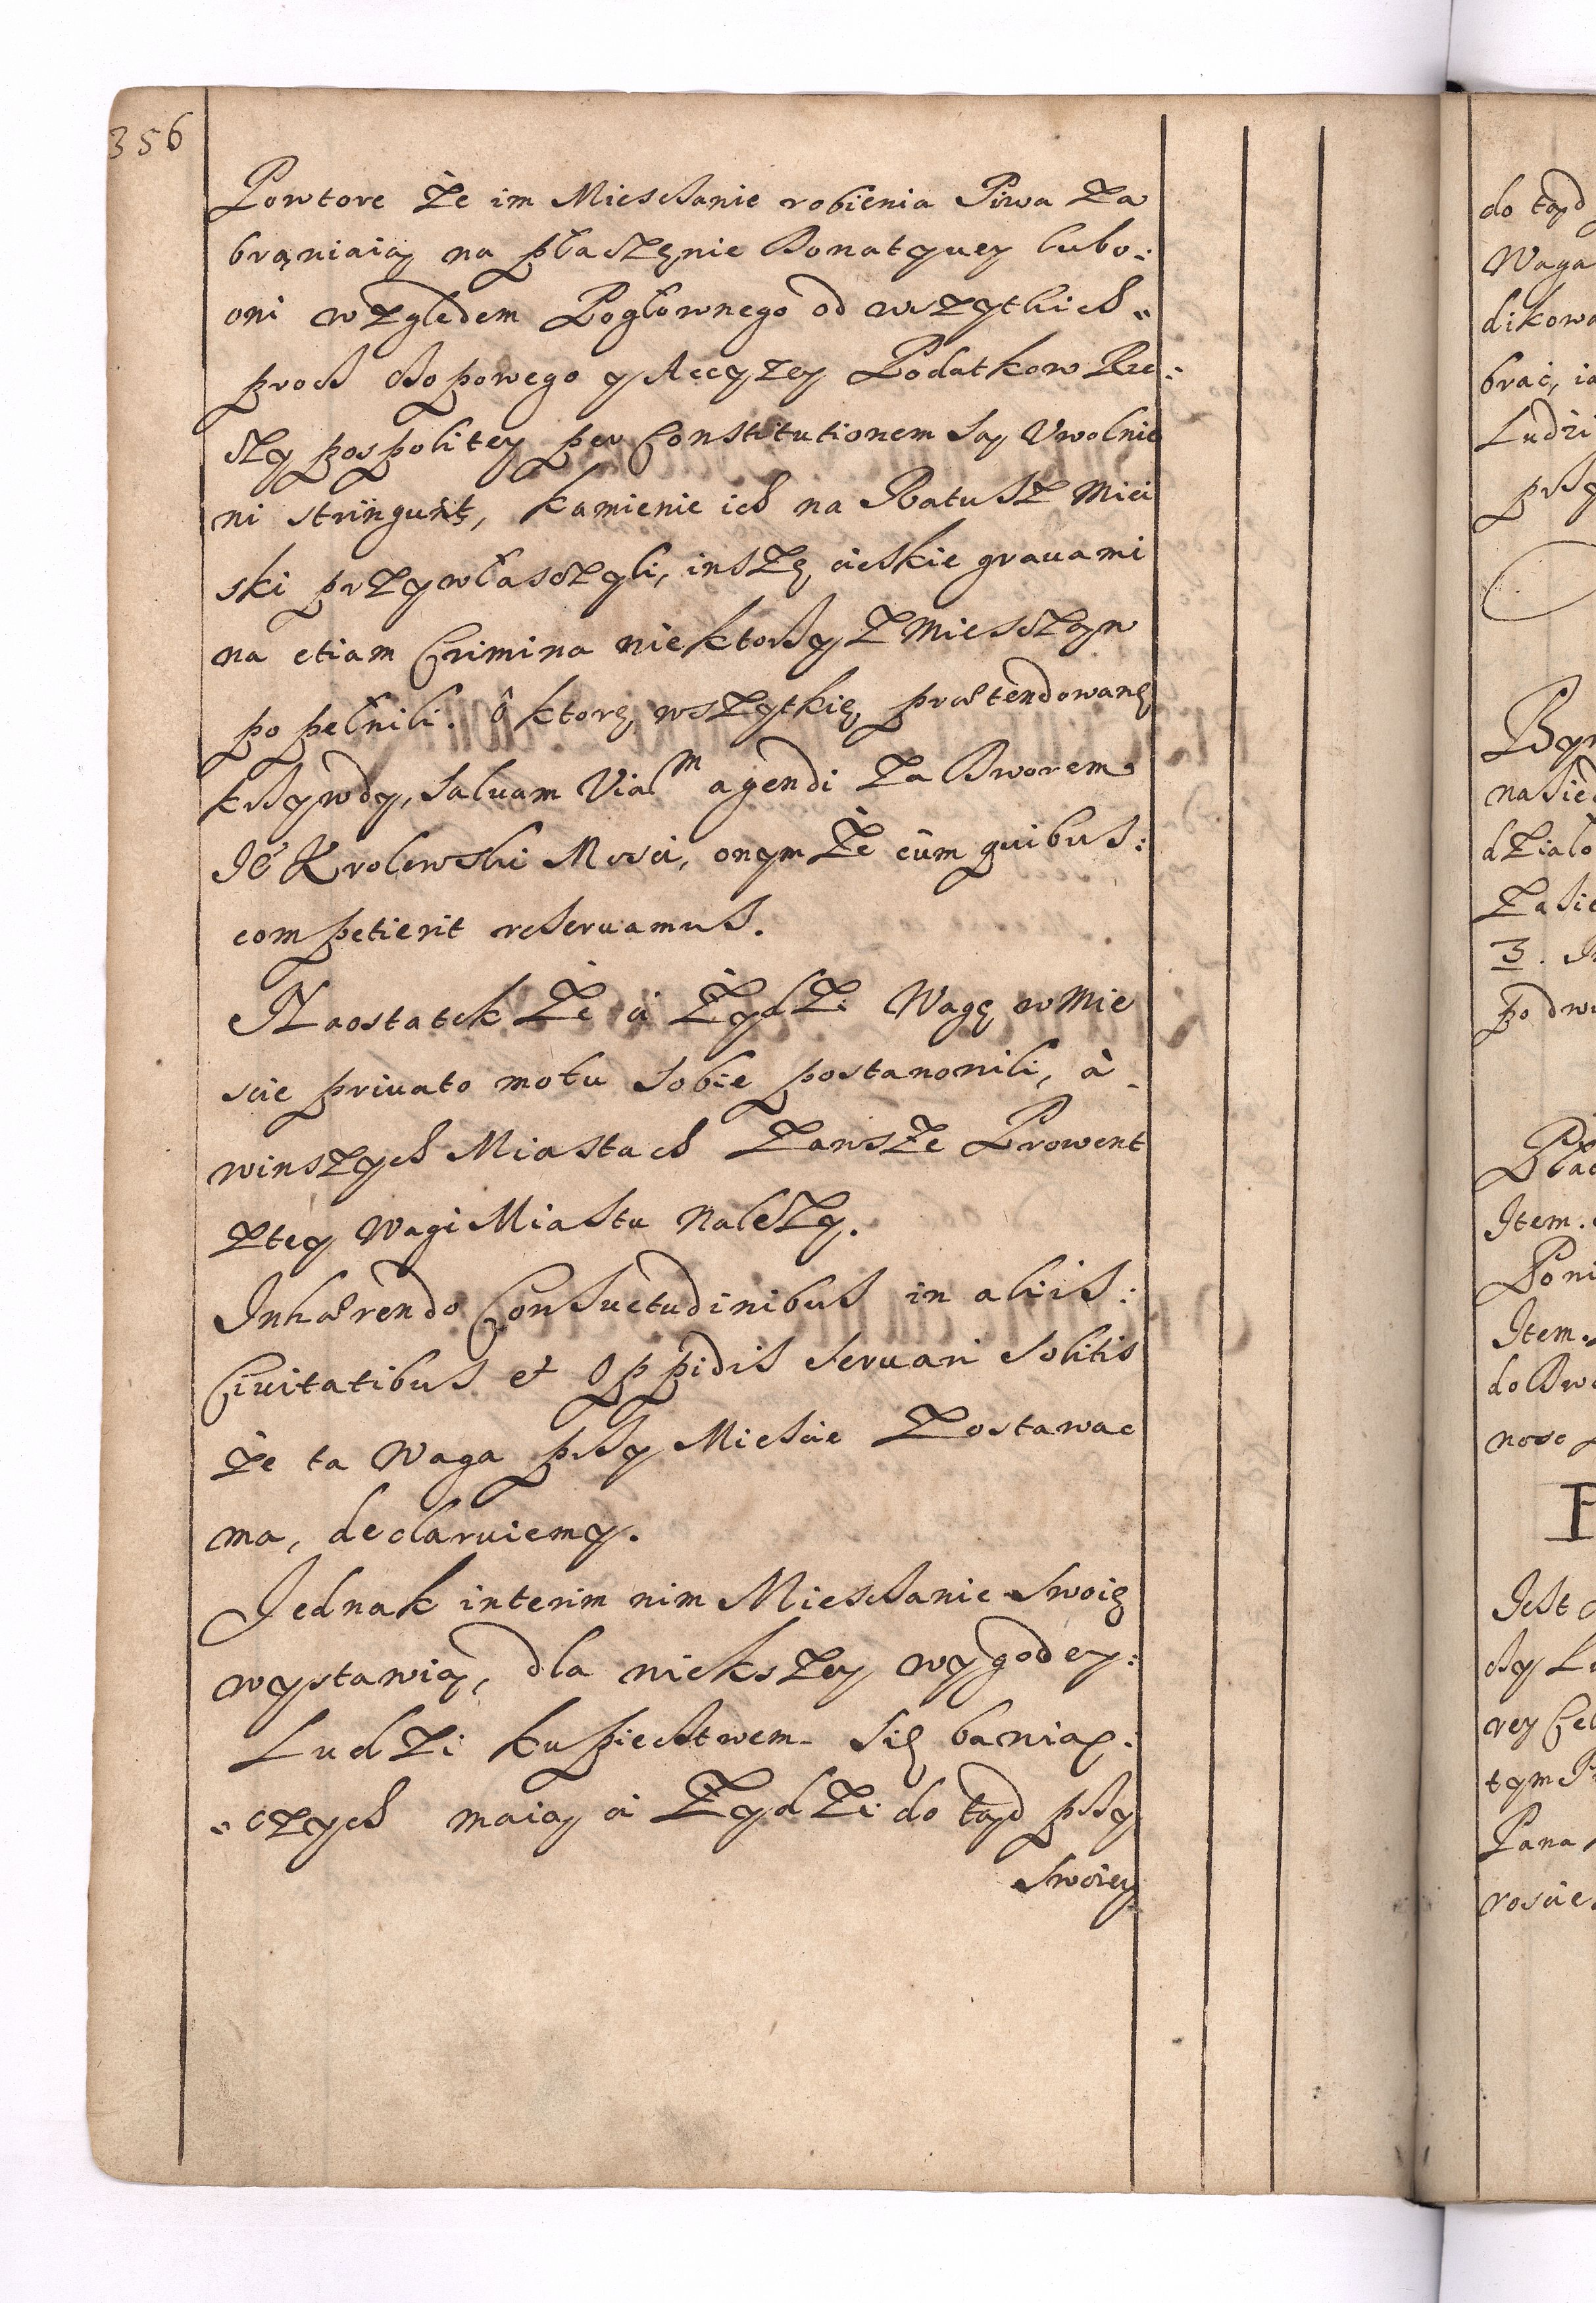 356
Powtore że im Mieschanie robienia Piwa za
brąniaią na płaszęnie Donatyuey lubo:
oni względem Pogłownego od wszytkich
proch Chopowego y Accyzey Podatkow Rze:
szy pospolitey per Constitutionem są Vwolnie
ni stringunt, kamienie ich na Ratusz Miei
ski przywłasczyli, inszę cieskie grauami
na etiam Crimina niektorzy z Miesczan
popełnili. ô ktorę wszytkię prætendowanę
krzywdy, saluam Viam agendi za Dworem
Jė Krolewski Mosci, onymże cūm quibus:
competierit reseruamus.
Naostatek że á Żydzi Wagę w Mie
scie priuato motu sobie postanonili, à
winszych Miastach zawsze Prowent
ztey Wagi Miastu należy.
Inhærendo Consuetudinibus in aliis:
Ciuitatibus et Oppidis seruari solitis
że ta Waga przy Miescie zostawac
ma, declaruiemy.
Jednak interim nim Mieschanie swoię
wystawią, dla niekszey wygodey:
Ludzi kupiectwem się baniaą:
czych maią á Żydzi do tąd przy
swoiey
do tąd
Waga
dikowa
brac, ia
Ludzi
przy
Byn
nasied
działo
zasie
3. I
podwo
Płac
Item.
Poni
Item.
do Dwo
nose
P
Jest
chy Lu
rey Cel
tym
Pana
roscie